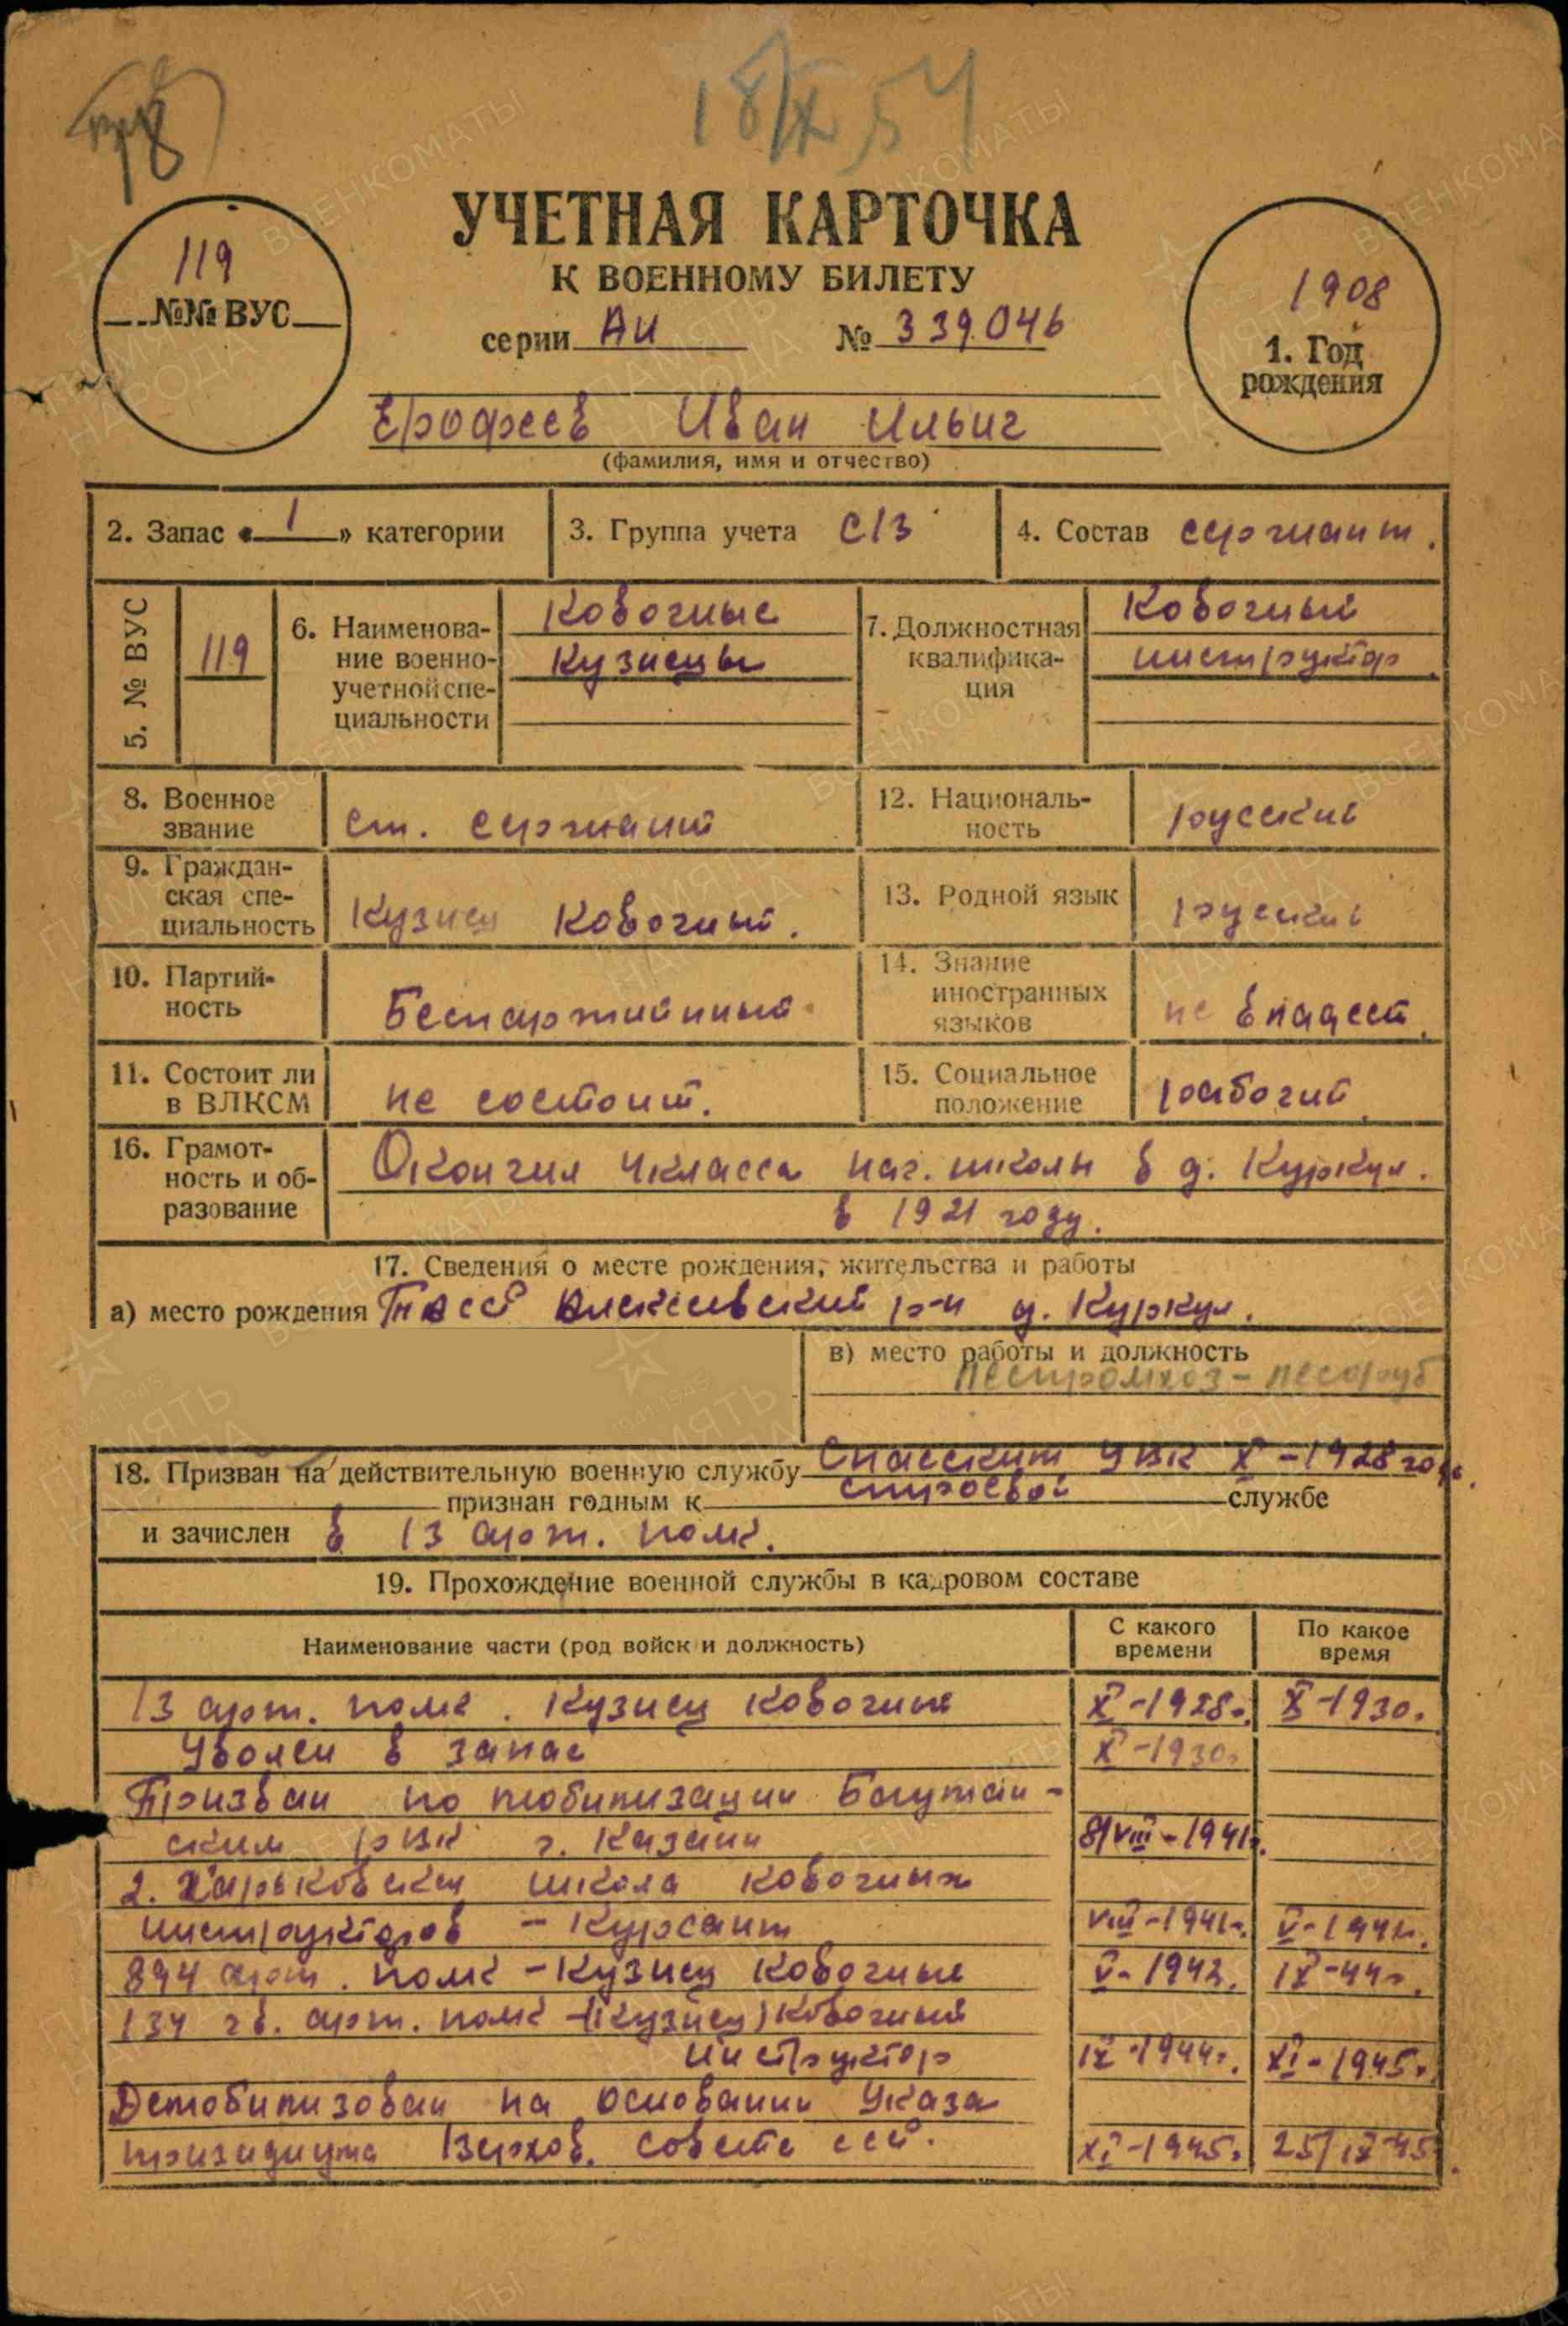 18/X 54
УЧЕТНАЯ КАРТОЧКА
К ВОЕННОМУ БИЛЕТУ
119
№№ ВУС
серии АИ № 339046
1908
1. Год
рождения
Ерофеев Иван Ильич
(фамилия, имя и отчество)
2. Запас « 1 » категории
3. Группа учета С/З
4. Состав сержант.
5. № ВУС
119
6. Наименова-
ние военно-
учетной спе-
циальности
Ковочные
Кузнецы
7. Должностная
квалифика-
ция
Ковочный
инструктор
8. Военное
звание
ст. сержант
12. Националь-
ность
русский
9. Граждан-
ская спе-
циальность
Кузнец Ковочный.
13. Родной язык
русский
10. Партий-
ность
Беспартийный
14. Знание
иностранных
языков
не владеет
11. Состоит ли
в ВЛКСМ
не состоит.
15. Социальное
положение
рабочий
16. Грамот-
ность и об-
разование
Окончил 4 класса нач. школы в д. Куркул.
в 1921 году.
17. Сведения о месте рождения, жительства и работы
а) место рождения ТАССР Алексеевский р-н д. Куркул.
в) место работы и должность
леспромхоз - лесоруб
18. Призван на действительную военную службу Спасским УВК X - 1928 году.
признан годным к строевой службе
и зачислен в 13 арт. полк.
19. Прохождение военной службы в кадровом составе
Наименование части (род войск и должность)
С какого
времени
По какое
время
13 арт. полк. Кузнец ковочный X-1928г. X-1930г.
Уволен в запас X-1930г.
Призван по мобилизации Бауман-
ским РВК г. Казани 8/VIII-1941г.
2. Харьковская школа ковочных
инструкторов - Курсант VIII-1941г. V-1942г.
894 арт. полк - Кузнец Ковочный V-1942. IX-44г.
134 гв. арт. полк - (Кузнец) Ковочный
инструктор IX-1944г. XI-1945г.
Демобилизован на основании Указа
призидиума Верхов. совета ссср. XI-1945г. 25/IX-45